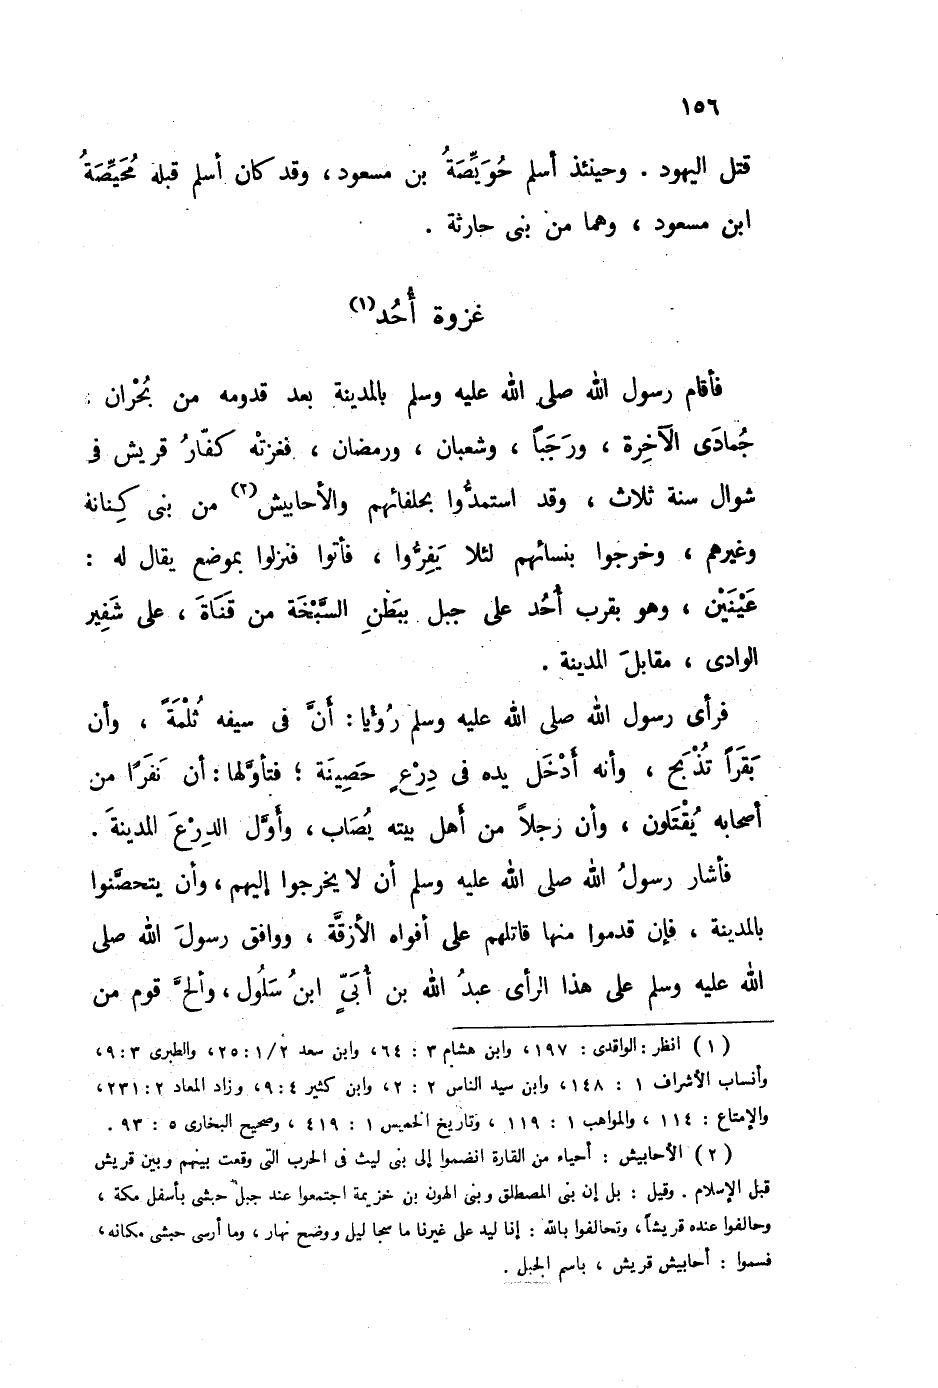 ١٥٦
قتل اليهود . وحينئذ أسلم حُوَيِّصَةُ بن مسعود ، وقد كان أسلم قبله مُحَيِّصَةُ
ابن مسعود ، وهما من بنى حارثة .
غزوة أُحُد (١)
فأقام رسول الله صلى الله عليه وسلم بالمدينة بعد قدومه من بُحْران :
جُمادَى الآخِرة ، ورَجَباً ، وشعبان ، ورمضان ، فغزتْه كفّارُ قريش فى
شوال سنة ثلاث ، وقد استمدُّوا بحلفائهم والأحابيش (٢) من بنى كِنانة
وغيرهم ، وخرجوا بنسائهم لئلا يَفِرُّوا ، فأتوا فنزلوا بموضع يقال له :
عَيْنَيْن ، وهو بقرب أُحُد على جبل ببَطْنِ السَّبْخَة من قَنَاةَ ، على شَفِير
الوادى ، مقابلَ المدينة .
فرأى رسول الله صلى الله عليه وسلم رُؤيا : أَنَّ فى سيفه ثُلْمَةً ، وأن
بَقَراً تُذْبَح ، وأنه أَدْخَل يده فى دِرْعٍ حَصِينَة ؛ فتأوَّلها : أن نَفَرًا من
أصحابه يُقْتَلون ، وأن رجلاً من أهل بيته يُصَاب ، وأَوَّل الدِرْعَ المدينةَ .
فأشار رسولُ الله صلى الله عليه وسلم أن لا يخرجوا إليهم ، وأن يتحصَّنوا
بالمدينة ، فإن قدموا منها قاتلهم على أفواه الأزقَّة ، ووافق رسولَ الله صلى
الله عليه وسلم على هذا الرأى عبدُ الله بن أُبَىّ ابنُ سَلُول ، وألحَّ قوم من
(١) انظر : الواقدى : ١٩٧، وابن هشام ٣ : ٦٤، وابن سعد ١/٢ : ٢٥، والطبرى ٣ : ٩،
وأنساب الأشراف ١ : ١٤٨، وابن سيد الناس ٢ : ٢، وابن كثير ٤ : ٩، وزاد المعاد ٢ : ٢٣١،
والإمتاع : ١١٤ ، والمواهب ١ : ١١٩ ، وتاريخ الخميس ١ : ٤١٩ ، وصحيح البخارى ٥ : ٩٣ .
(٢) الأحابيش : أحياء من القارة انضموا إلى بنى ليث فى الحرب التى وقعت بينهم وبين قريش
قبل الإسلام . وقيل : بل إن بنى المصطلق وبنى الهون بن خزيمة اجتمعوا عند جبل حبشى بأسفل مكة ،
وحالفوا عنده قريشاً ، وتحالفوا بالله : إنا ليد على غيرنا ما سجا ليل ووضح نهار ، وما أرسى حبشى مكانه ،
فسموا : أحابيش قريش ، باسم الجبل .